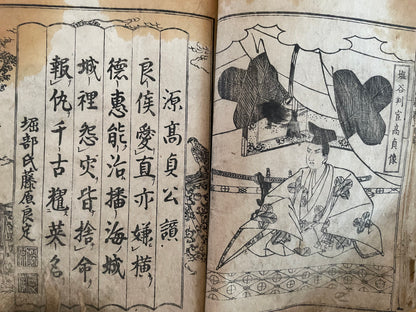 塩谷判官髙貞像
源髙貞公讃
良侯愛直亦嫌横
徳惠能治播海城
城裡怨皆捨命
報仇千古耀英名
堀部氏藤原良定